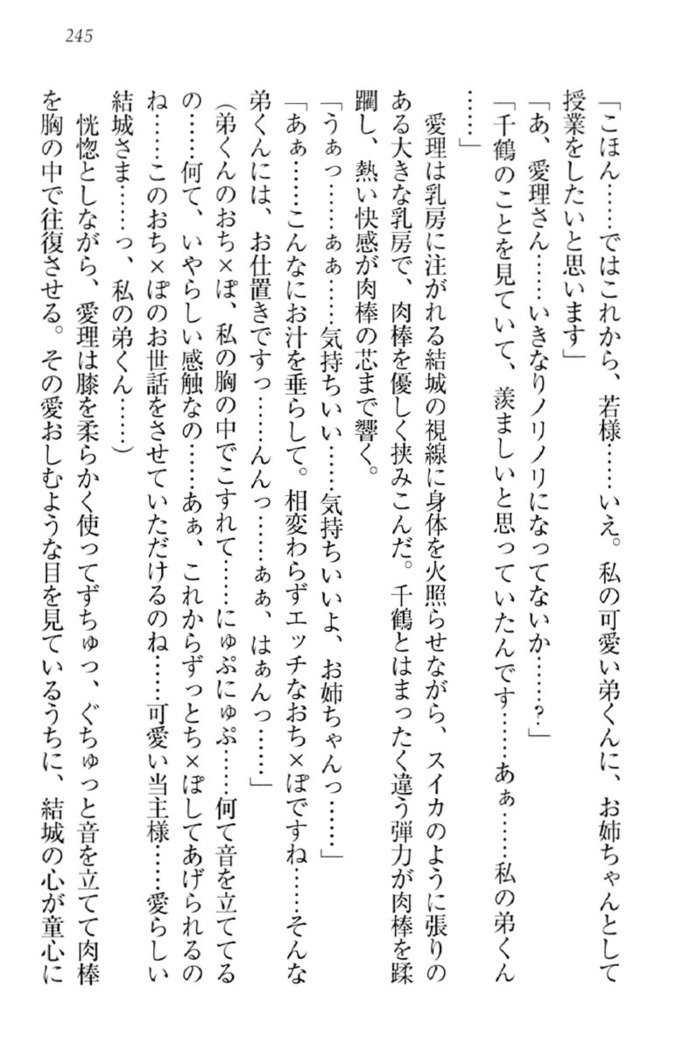 245
「こほん……ではこれから、若様……いえ。私の可愛い弟くんに、お姉ちゃんとして
授業をしたいと思います」
「あ、愛理さん……いきなりノリノリになってないか……？」
「千鶴のことを見ていて、羨ましいと思っていたんです……あぁ……私の弟くん
……」
愛理は乳房に注がれる結城の視線に身体を火照らせながら、スイカのように張りの
ある大きな乳房で、肉棒を優しく挟みこんだ。千鶴とはまったく違う弾力が肉棒を蹂
躙し、熱い快感が肉棒の芯まで響く。
「うぁっ……ぁぁ……気持ちいい……気持ちいいよ、お姉ちゃんっ……」
「あぁ……こんなにお汁を垂らして。相変わらずエッチなおち×ぽですね……そんな
弟くんには、お仕置きですっ……んんっ……ぁぁ、はぁんっ……」
（弟くんのおち×ぽ、私の胸の中でこすれて……にゅぷにゅぷ……何て音を立ててる
の……何て、いやらしい感触なの……あぁ、これからずっとち×ぽしてあげられるの
ね……このおち×ぽのお世話をさせていただけるのね……可愛い当主様……愛らしい
結城さま……っ、私の弟くん……）
恍惚としながら、愛理は膝を柔らかく使ってずちゅっ、ぐちゅっと音を立てて肉棒
を胸の中で往復させる。その愛おしむような目を見ているうちに、結城の心が童心に